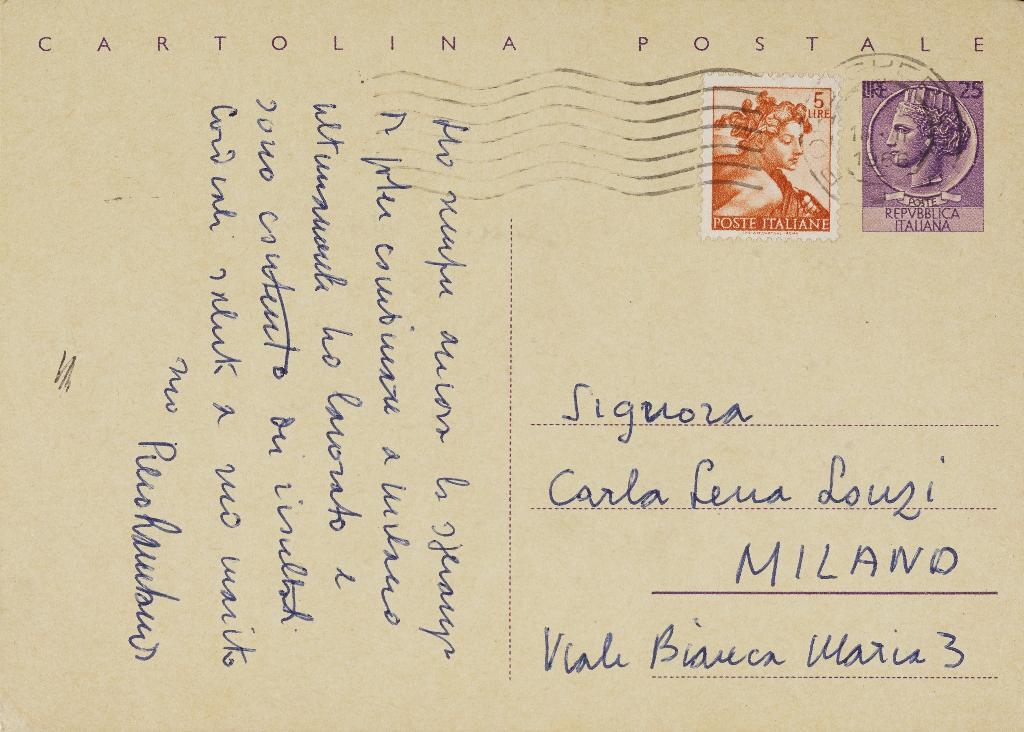 CARTOLINA POSTALE
5 LIRE
POSTE ITALIANE
LIRE 25
POSTE
REPVBBLICA
ITALIANA
1966
Ho sempre ancora la speranza
di poter cominciare a Milano
ultimamente ho lavorato e
sono contento dei risultati
Cordiali saluti a suo marito
suo Piero
Signora
Carla Lena Lonzi
MILANO
Viale Bianca Maria 3